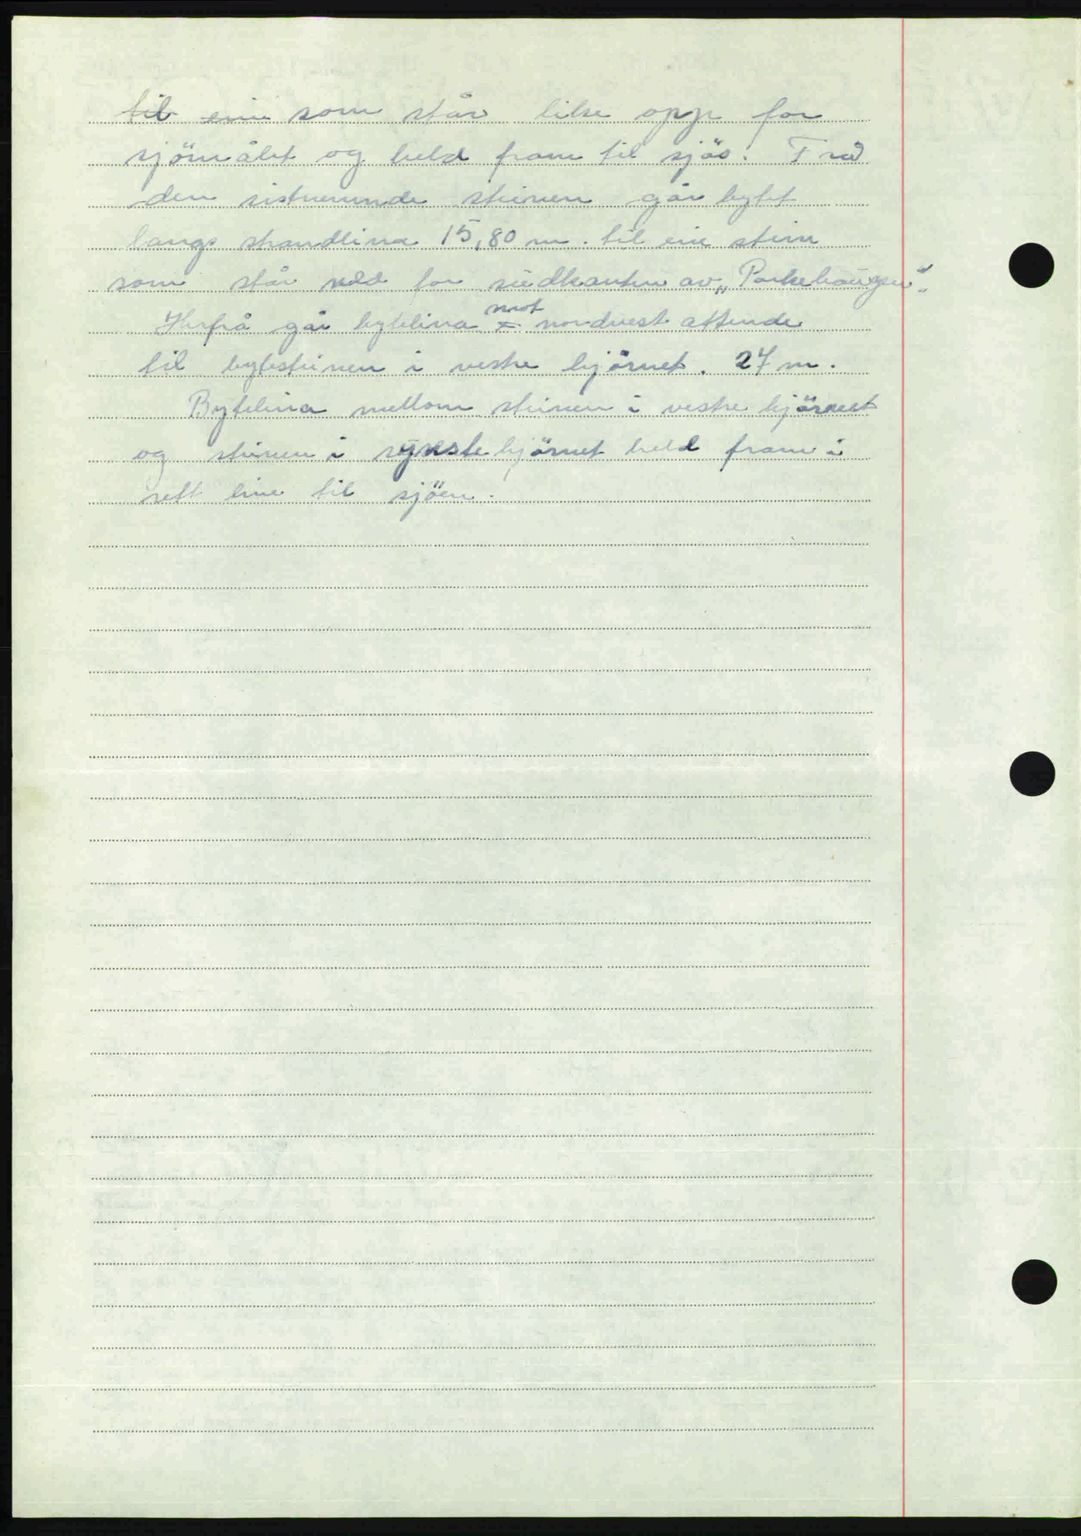 til ein som står like opp for
sjömålet og held fram til sjös. Frå
den sistnemnde steinen går bytet
langs strandlina 15,80 m. til ein stein
som står ned for sudkanten av „Parkehaugen".
Herfrå går bytelina mot nordvest attende
til bytesteinen i vestre hjörnet. 27 m.
Bytelina mellom steinen i vestre hjörnet
og steinen i syneste hjörnet held fram i
rett line til sjöen.